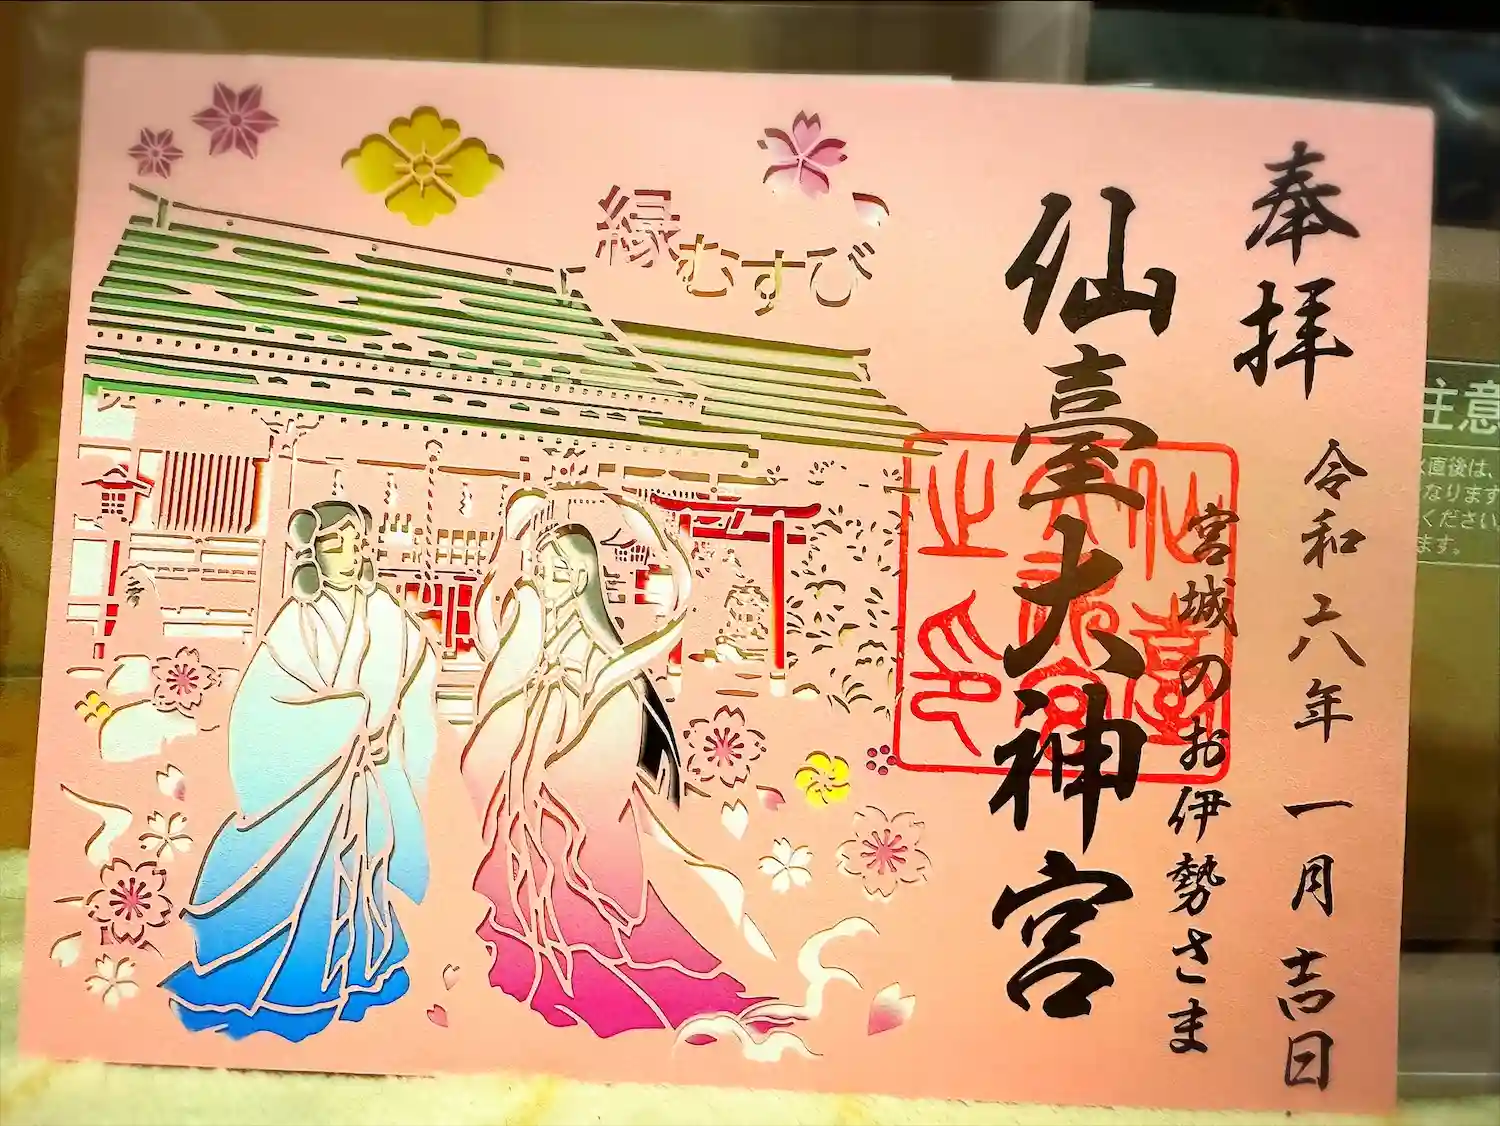 奉拝
令和六年一月吉日
宮城のお伊勢さま
仙臺大神宮
縁むすび
仙臺
大神宮
之印
注意
直後は、
なります
ください
ます。